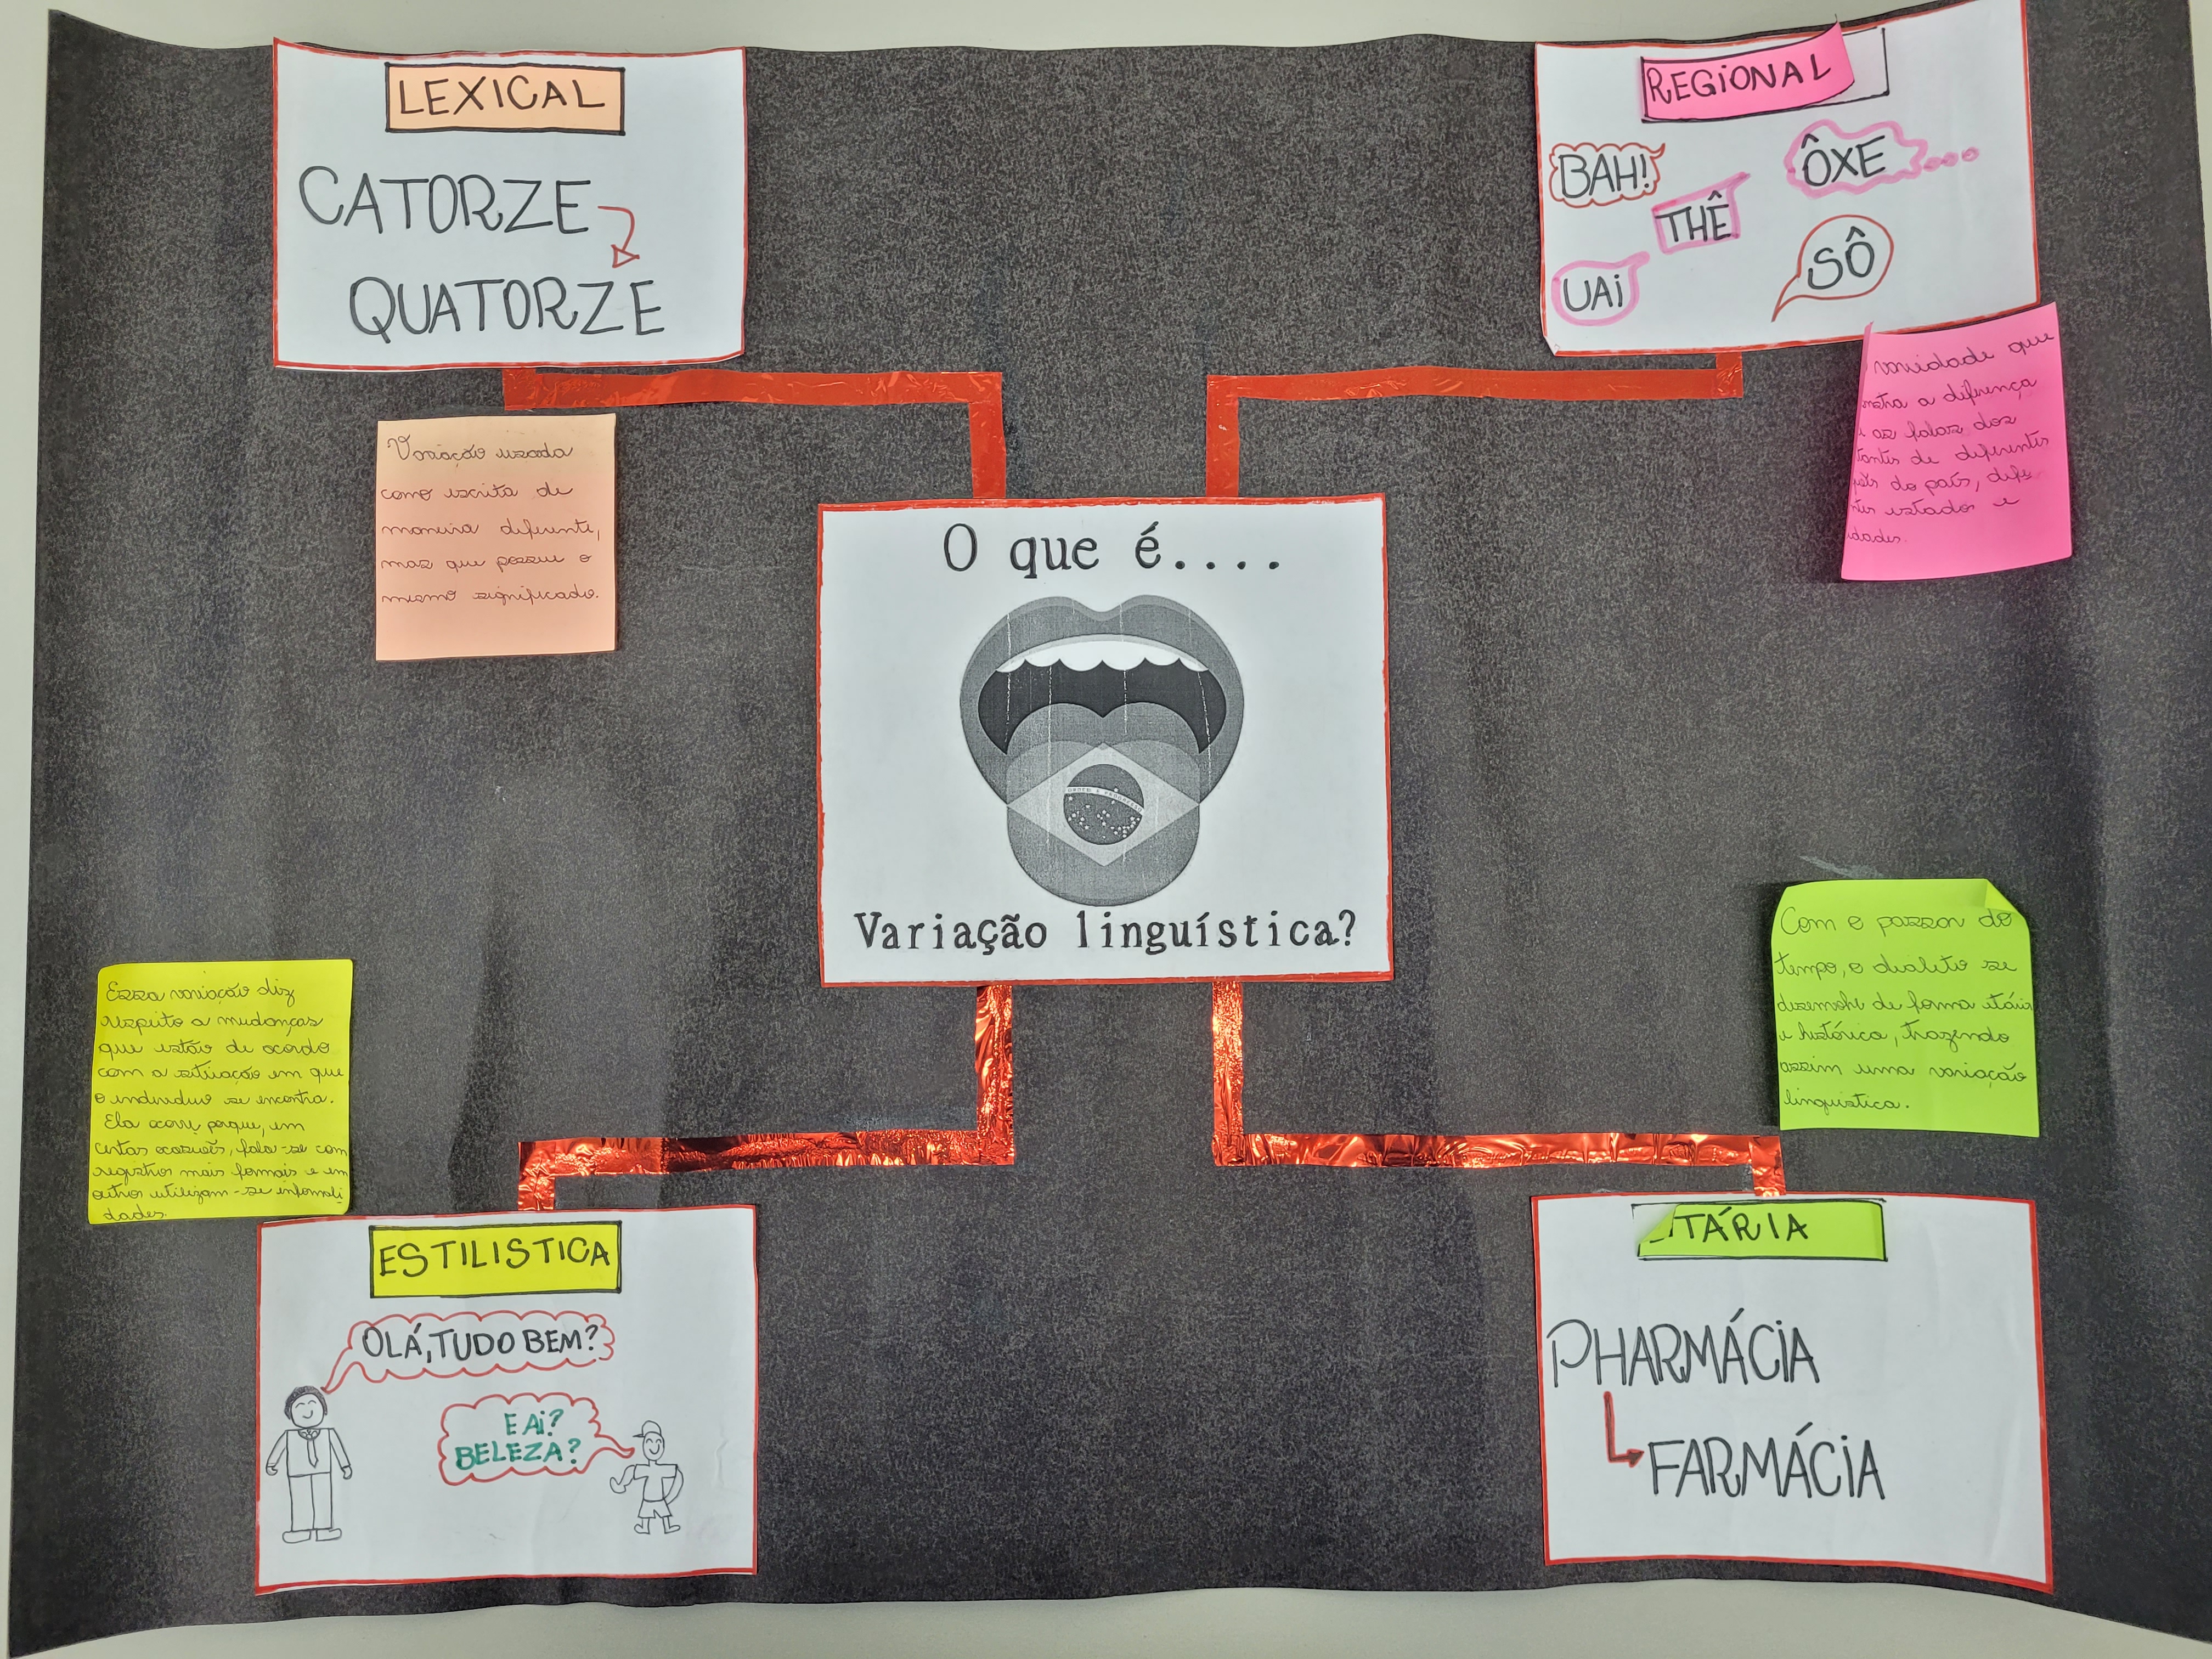 LEXICAL
CATORZE
QUATORZE
Variação usada
como escrita de
maneira diferente,
mas que possue o
mesmo significado.
REGIONAL
BAH!
THÊ
ÔXE
UAI
SÔ
variedade que
a diferença
as falas dos
de diferentes
do país,
estados e
O que é....
ORDEM E PROGRESSO
Variação linguística?
Essa variação diz
respeito a mudanças
que estão de acordo
com a situação em que
o individuo se encontra.
Ela ocorre porque, em
certas ocasiões, fala-se com
registros mais formais e em
outros utilizam-se informali
dades.
ESTILISTICA
OLÁ, TUDO BEM?
E AI?
BELEZA?
Com o passar do
tempo, o dialeto se
de forma etária
e histórica, trazendo
assim uma variação
linguistica.
TÁRIA
PHARMÁCIA
FARMÁCIA